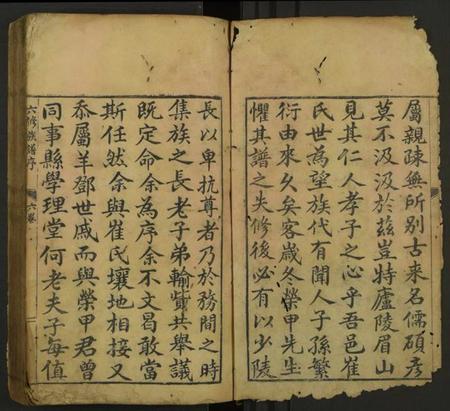 屬親疎無所別古来名儒碩彦
莫不汲汲於兹豈特廬陵眉山
見其仁人孝子之心乎吾邑崔
氏世為望族代有聞人子孫繁
衍由来久矣客嵗冬榮甲先生
懼其譜之失修後必有以少陵
長以卑抗尊者乃於務間之時
集族之長老子弟輸貲共舉議
既定命余為序余不文曷敢當
斯任然余與崔氏壤地相接又
忝屬羊鄧世戚而與榮甲君曾
同事縣學理堂何老夫子每值
六修族譜序
六卷